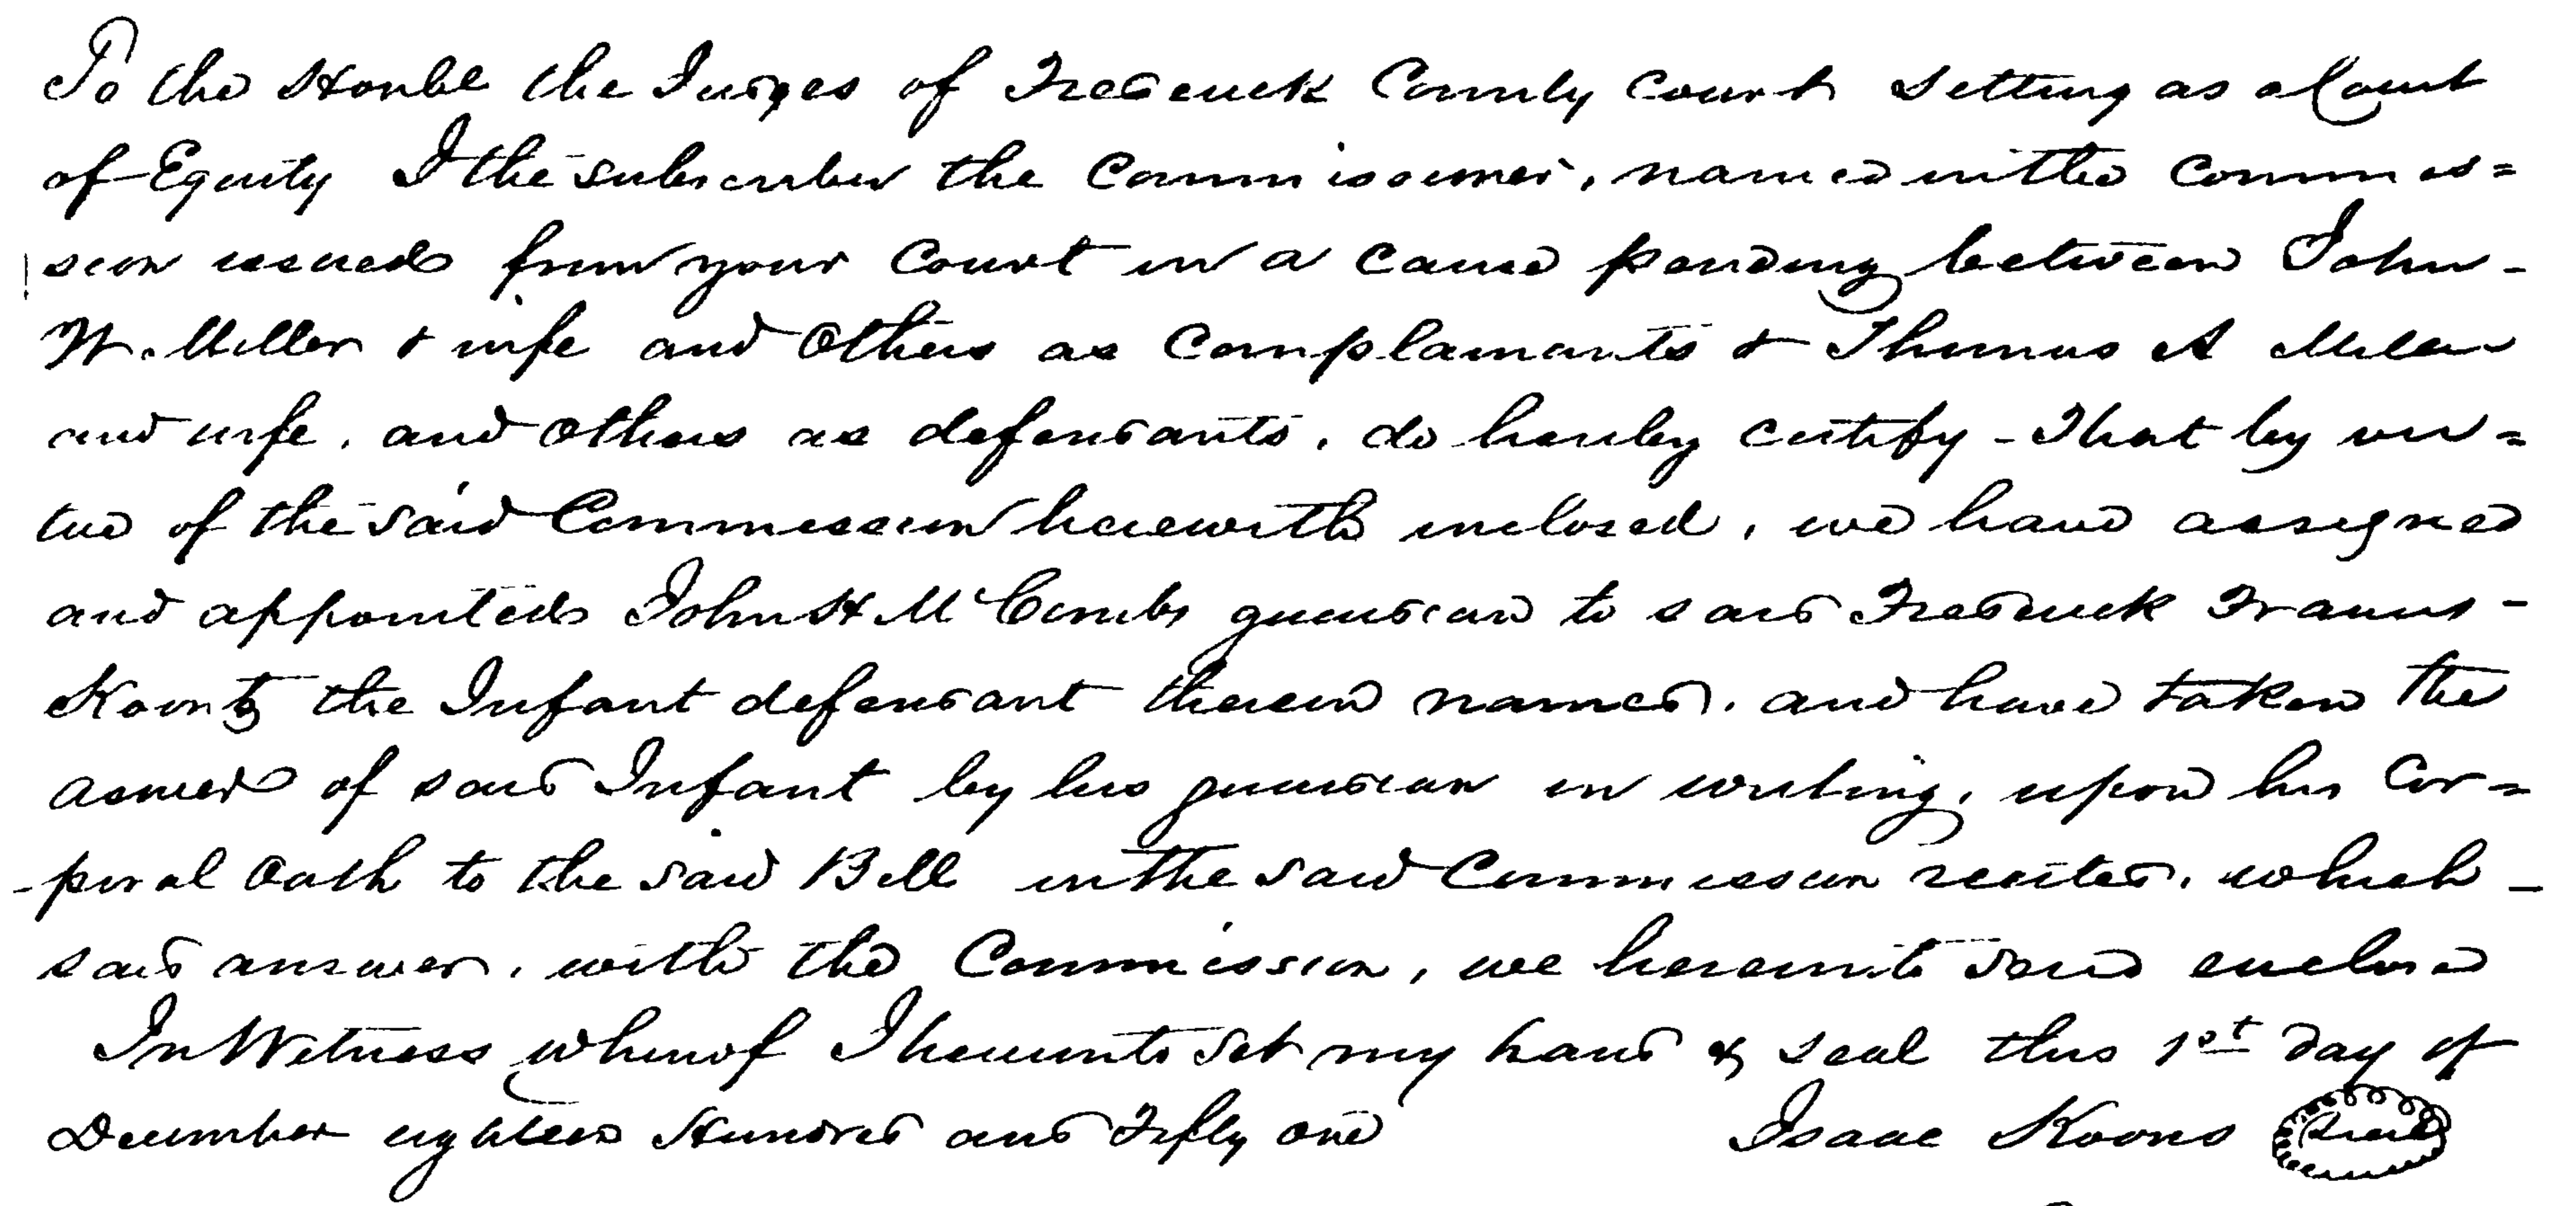 To the Honble the Judges of Frederick County Court Setting as a Court
of Equity I the subscriber the Commissioner, named in the Commis=
sion issued from your Court in a Cause pending between John -
W. Miller & wife and Others as Complainants & Thomas A
and wife, and Others as defendants, do hereby certify - That by vir=
tue of the said Commission herewith inclosed, we have assigned
and appointed John H McCombs guardian to said Frederick Francis -
Koontz the Infant defendant therein named, and have taken the
answer of said Infant by his guardian in writing, upon his Cor=
-poral Oath to the said Bill in the said Commission recited, which -
said answer, with the Commission, we hereunto send enclosed
In Witness whereof I hereunto set my hand & seal this 1st day of
December eighteen Hundred and Fifty one Isaac Koons Seal